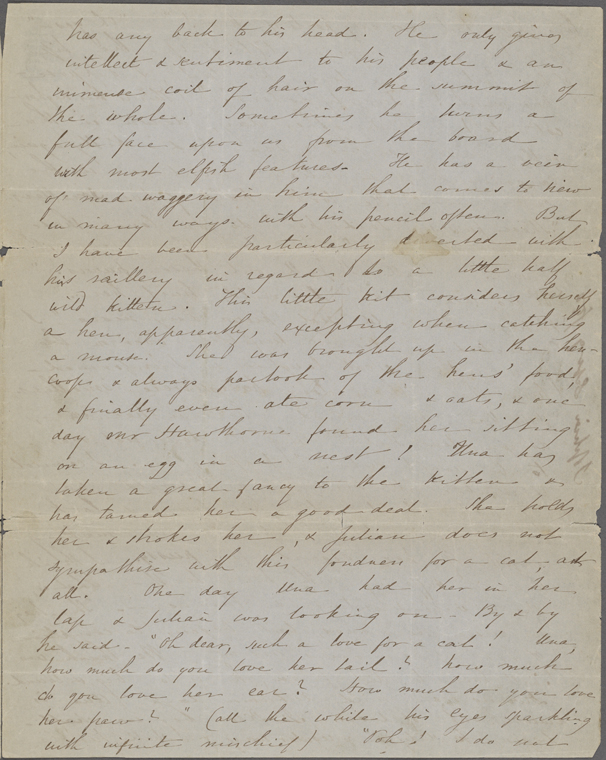 has any back to his head. He only gives
intellect & sentiment to his people & an
immense coil of hair on the summit of
the whole. Sometimes he turns a
full face upon us from the board
with most elfish features. He has a vein
of mad waggery in him that comes to view
in many ways. with his pencil often. But
I have been particularly diverted with
his raillery in regard to a little half
wild kitten. This little kit considers herself
a hen, apparently, excepting when catching
a mouse. She was brought up in the hen-
coop & always partook of the hens' food,
& finally even ate corn & oats, & one
day Mr Hawthorne found her sitting
on an egg in a nest! Una has
taken a great fancy to the kitten &
has tamed her a good deal. She holds
her & strokes her, & Julian does not
sympathise with this fondness for a cat at
all. One day Una had her in her
lap & Julian was looking on. By & by
he said - "Oh dear, such a love for a cat! Una,
how much do you love her tail? how much
do you love her ear? How much do you love
her paw?" (all the while his eyes sparkling
with infinite mischief) "Ooh! I do not